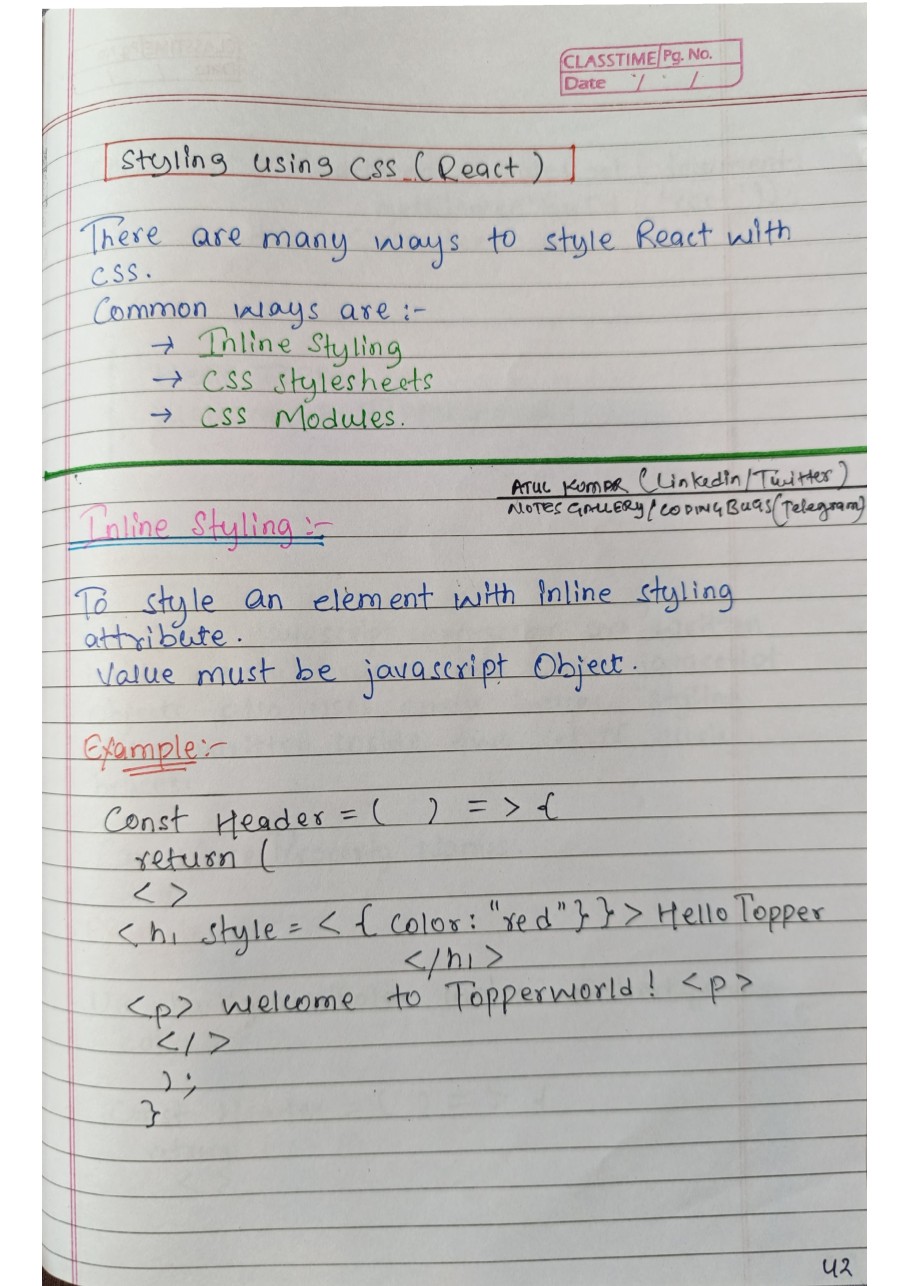 CLASSTIME Pg. No.
Date / /
Styling using CSS (React)
There are many ways to style React with
CSS.
Common ways are :-
→ Inline Styling
→ CSS stylesheets
→ CSS Modules.
ATUL KUMAR (Linkedin/Twitter)
NOTES GALLERY/CODING BUGS(Telegram)
Inline Styling :-
To style an element with inline styling
attribute.
Value must be javascript Object.
Example:-
Const Header = ( ) = > {
return (
< >
<h1 style = < { color : "red" } } > Hello Topper
</h1>
<p> welcome to Topperworld ! <p>
</>
);
}
42